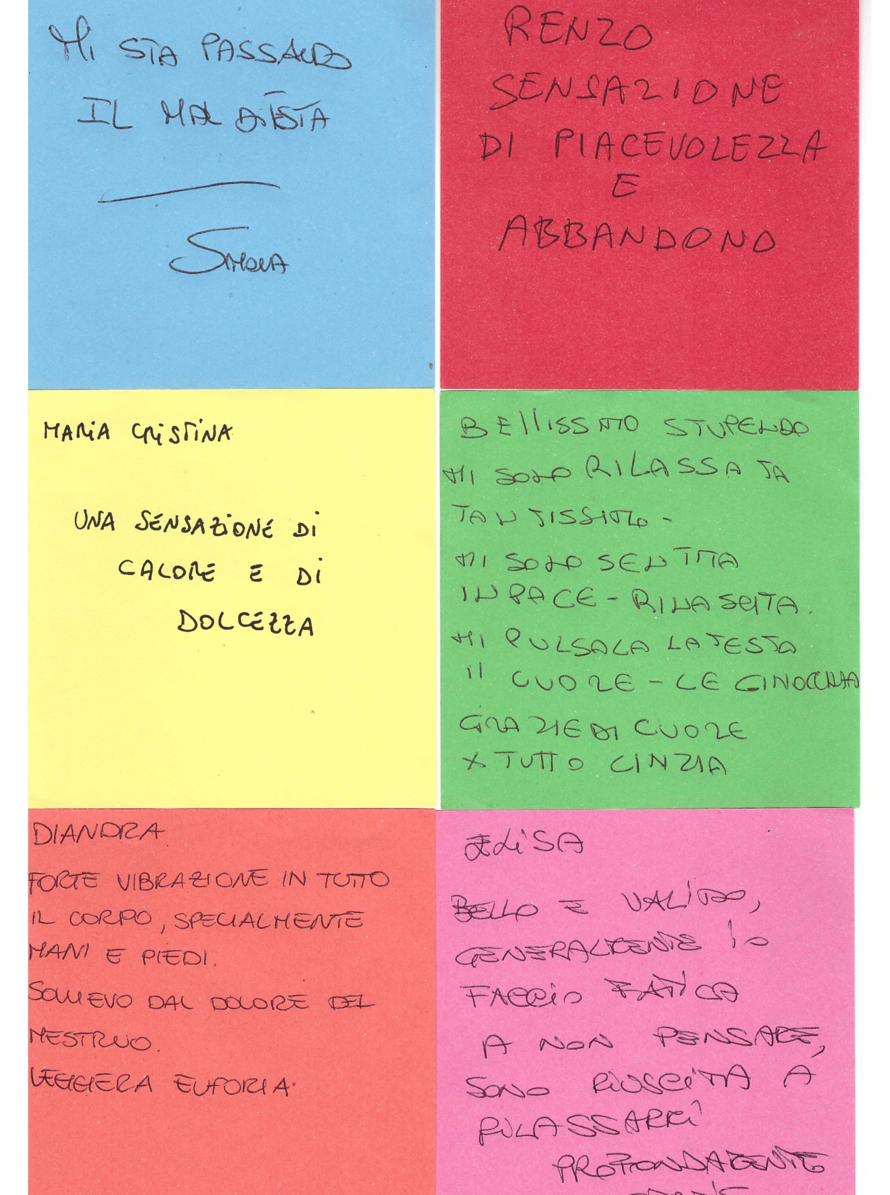 MI STA PASSANDO
IL MAL DI TESTA
RENZO
SENSAZIONE
DI PIACEVOLEZZA
E
ABBANDONO
MARIA CRISTINA
UNA SENSAZIONE DI
CALORE E DI
DOLCEZZA
BELLISSIMO STUPENDO
MI SONO RILASSATA
TANTISSIMO -
MI SONO SENTITA
IN PACE - RINASCITA.
MI PULSAVA LA TESTA
il CUORE - LE GINOCCHIA
GRAZIE DI CUORE
X TUTTO CINZIA
DIANDRA
FORTE VIBRAZIONE IN TUTTO
IL CORPO, SPECIALMENTE
MANI E PIEDI.
SOLLIEVO DAL DOLORE DEL
MESTRUO.
LEGGERA EUFORIA.
EDISA
BELLO E VALIDO,
GENERALMENTE io
FACCIO FATICA
A NON PENSARE,
SONO RIUSCITA A
RILASSARMI
PROFONDAMENTE